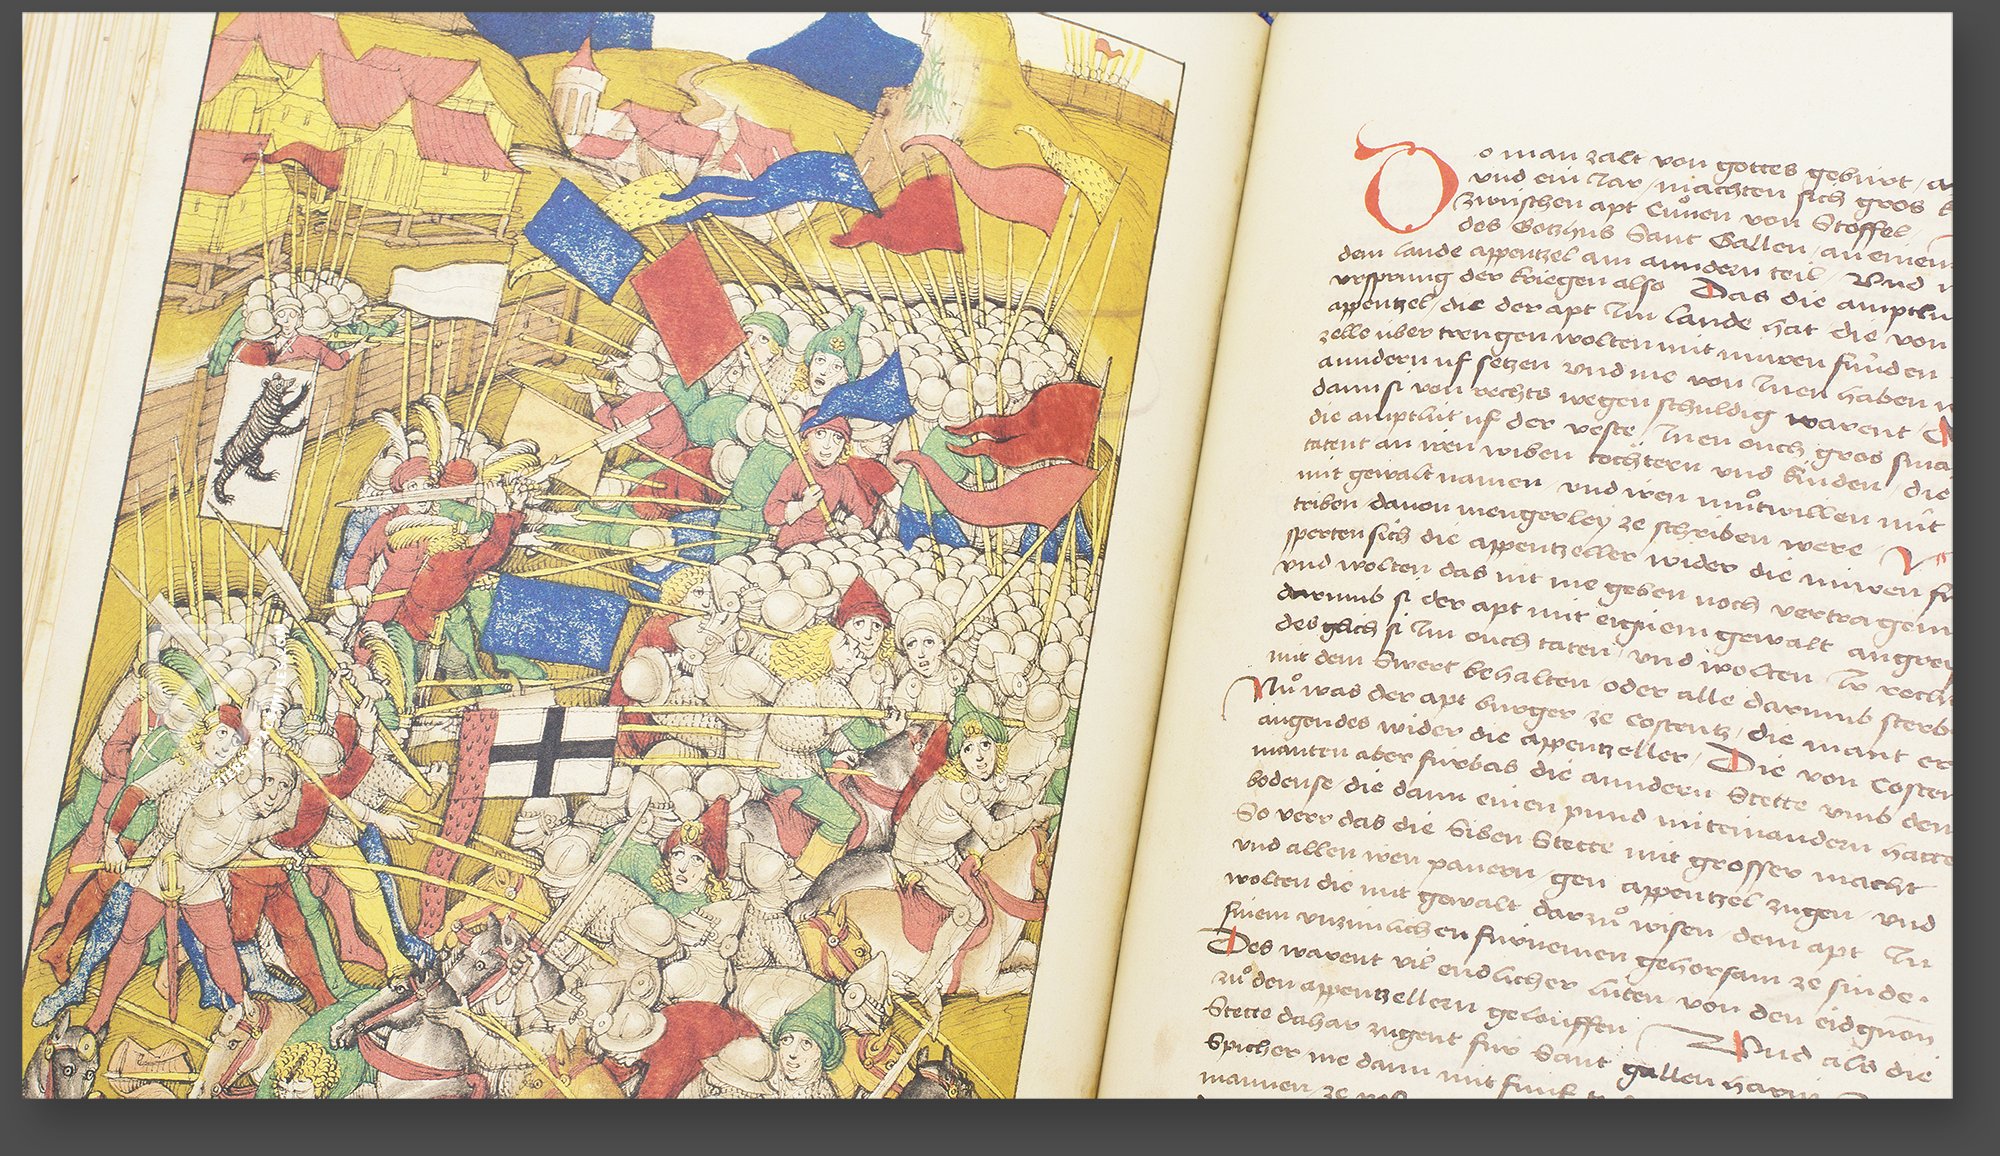 Do man zalt von gottes gebúrt /
vnd ein Jar / machten sich gros
zwúschen apt Cůnen von Stoffel /
des Gotzhus Sant Gallen / an einem
dem lande appentzel am anndern teil / Vnd
vrsprung der kriegen also Das die amptlú
appentzel / die der apt Im lande hat die von
zelle úber trengen wolten mit núwen fúnden
anndern uf setzen vnd me von Inen haben
dann si von rechts wegen schuldig warent
die amptlút uf der veste / Inen ouch gros sma
tatent an iren wiben tochtern vnd kinden / die
mit gewalt namen vnd iren můtwillen mit
triben dauon mengerley ze schriben were
sperten sich die appentzeller wider die núwen
vnd wolten das nit me geben noch vertragenn
darumb si der apt mit eignem gewalt angrei
des glich si Im ouch taten / vnd wolten Ir recht
mit dem Swert behalten / oder alle darumb sterb
Nů was der apt burger ze Costentz / die mant er
angendes wider die appentzeller / Die von Costen
manten aber fúrbas die anndern Stette vmb den
bodense die dann einen punnd miteinandern hatte
So verr das die Siben Stette mit grosser macht
vnd allen iren pauern / gen appentzel zugen / vnd
wolten die mit gewalt darzů wisen / dem apt In
sinem vnzimlichen fúrnemen gehorsam ze sinde
Des warent vil endlicher lúten von den eidgnon
zů den appentzellern gelouffen Vnd als die
Stette dahar zugent fúr Sant gallen harin
Spicher me dann mit fúnf
mannen / ze